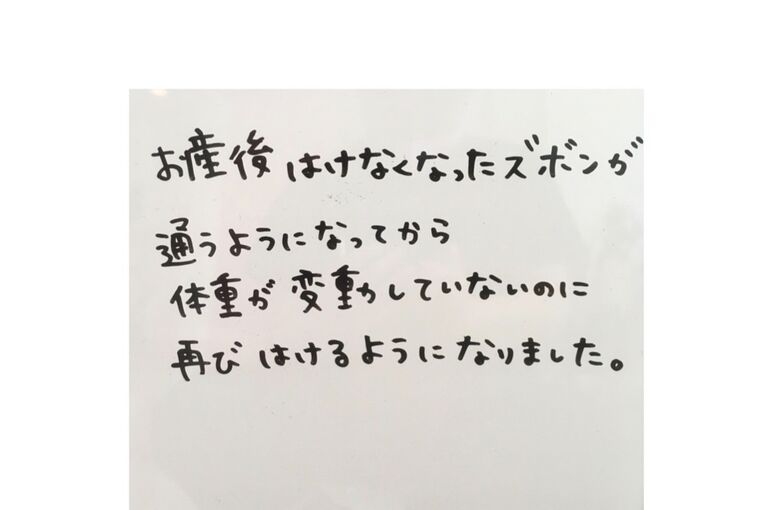 お産後はけなくなったズボンが
通うようになってから
体重が変動していないのに
再びはけるようになりました。